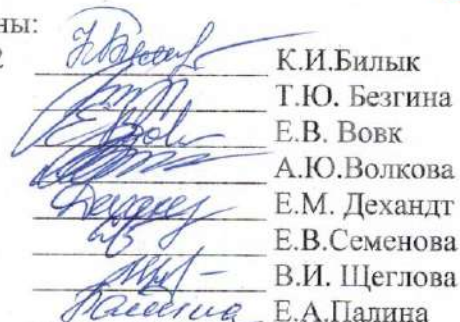 ны:
2 К.И.Билык
Т.Ю. Безгина
Е.В. Вовк
А.Ю.Волкова
Е.М. Дехандт
Е.В.Семенова
В.И. Щеглова
Е.А.Палина